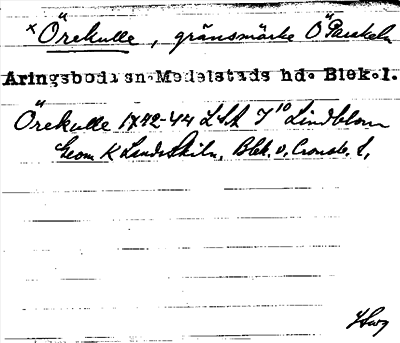 x Örekulle, gränsmärke Ö Paskeln
Aringsboda sn Medelstads hd. Blek.l.
Örekulle 1742-44 LSA J 10 Lindblom
Geom K Landsskiln. Blek. o. Cronob. l,